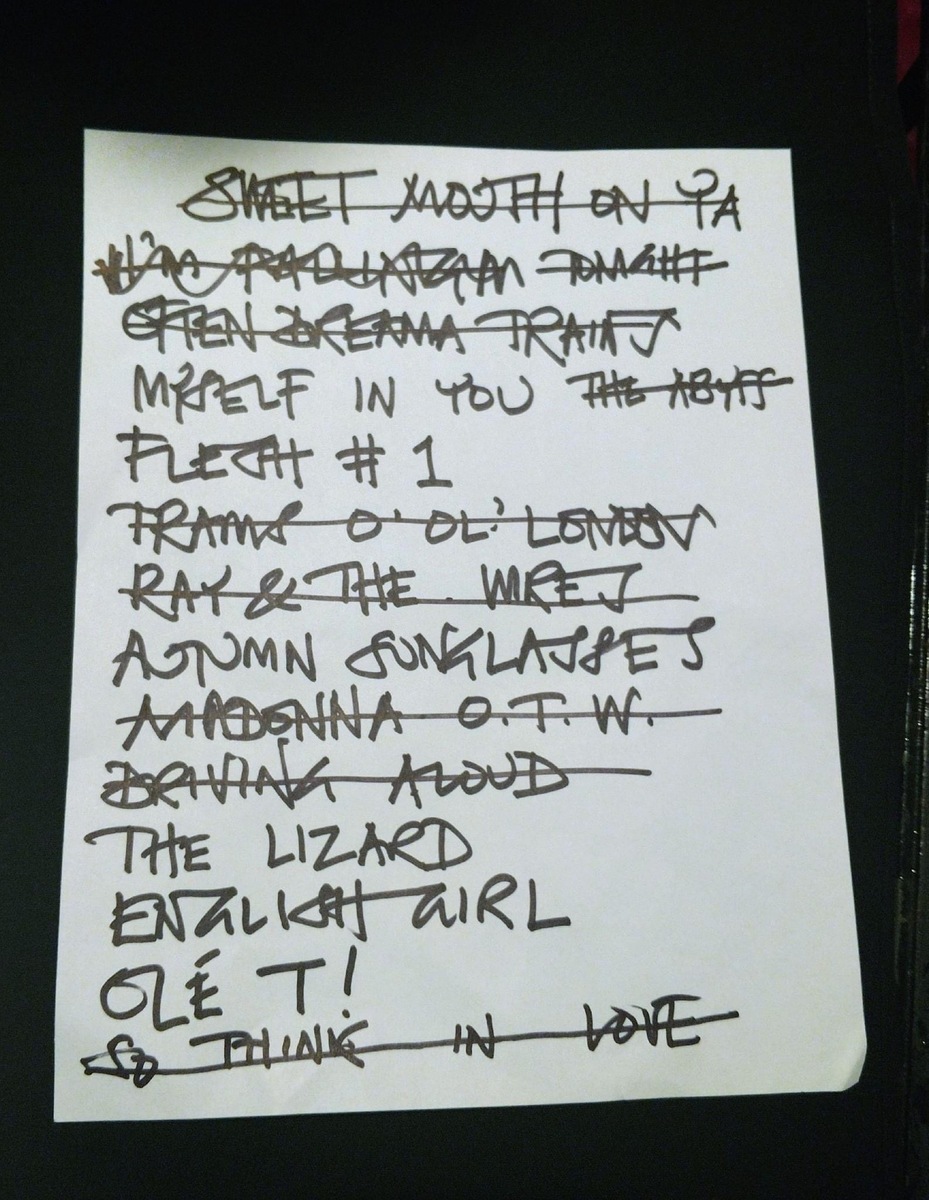 SWEET MOUTH ON YA
I'M TONIGHT
OFTEN DREAMA TRAINS
MYSELF IN YOU THE ABYSS
FLESH # 1
TRAMS O' OL' LONDON
RAY & THE WIRES
AUTUMN SUNGLASSES
MADONNA O.T.W.
DRIVING ALOUD
THE LIZARD
ENGLISH GIRL
OLÉ T!
SO THINK IN LOVE